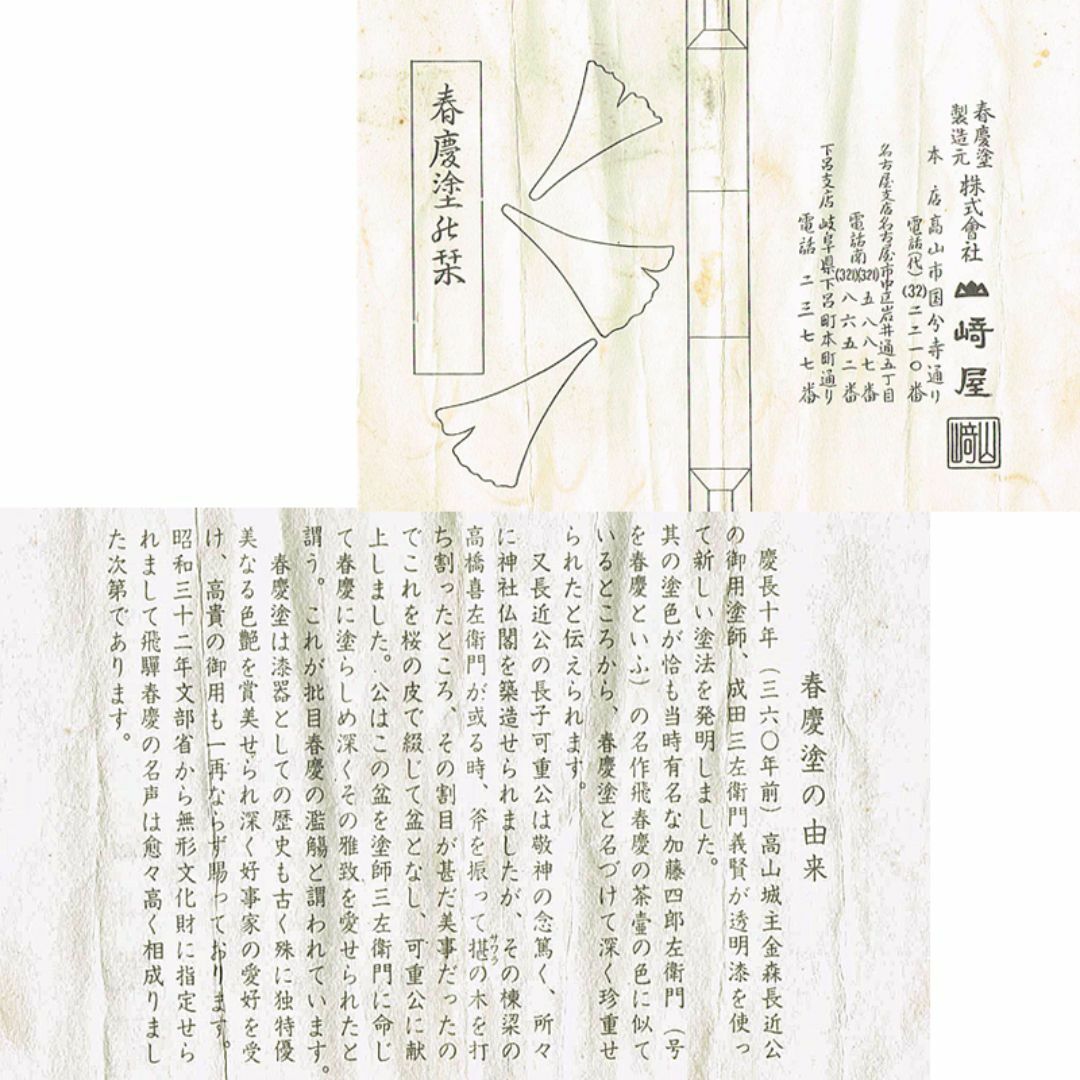 春慶塗
製造元
株式會社 山崎屋
山﨑
本店 高山市国分寺通り
電話(代)(32)二二一〇番
名古屋支店 名古屋市中区岩井通五丁目
電話南(321)五八八七番
(321)八六五二番
下呂支店 岐阜県下呂町本町通り
電話 二三七七番
春慶塗の栞
春慶塗の由来
慶長十年(三六〇年前)高山城主金森長近公
の御用塗師、成田三左衛門義賢が透明漆を使っ
て新しい塗法を発明しました。
其の塗色が恰も当時有名な加藤四郎左衛門(号
を春慶といふ)の名作飛春慶の茶壷の色に似て
いるところから、春慶塗と名づけて深く珍重せ
られたと伝えられます。
又長近公の長子可重公は敬神の念篤く、所々
に神社仏閣を築造せられましたが、その棟梁の
高橋喜左衛門が或る時、斧を振って椹サワラの木を打
ち割ったところ、その割目が甚だ美事だったの
でこれを桜の皮で綴じて盆となし、可重公に献
上しました。公はこの盆を塗師三左衛門に命じ
て春慶に塗らしめ深くその雅致を愛せられたと
謂う。これが批目春慶の濫觴と謂われています。
春慶塗は漆器としての歴史も古く殊に独特優
美なる色艶を賞美せられ深く好事家の愛好を受
け、高貴の御用も一再ならず賜っております。
昭和三十二年文部省から無形文化財に指定せら
れまして飛驒春慶の名声は愈々高く相成りまし
た次第であります。